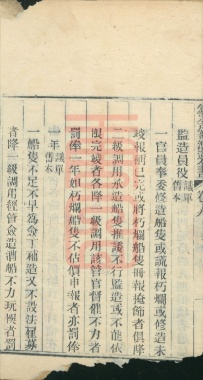 監造員役 議單舊本
一官員奉委修造船隻或謊報朽爛或修造未
竣報稱已完或將朽爛船隻冊報掩飾者俱降
二級調用承造船隻推諉不行監造或不能依
限完竣者各降一級調用該管官督催不力者
罰俸一年如朽爛船隻不估價申報者亦罰俸
一年 議單舊本
一船隻不足不早為僉丁補造又不設法
者降一級調用經管僉造漕船不力玩視者罰